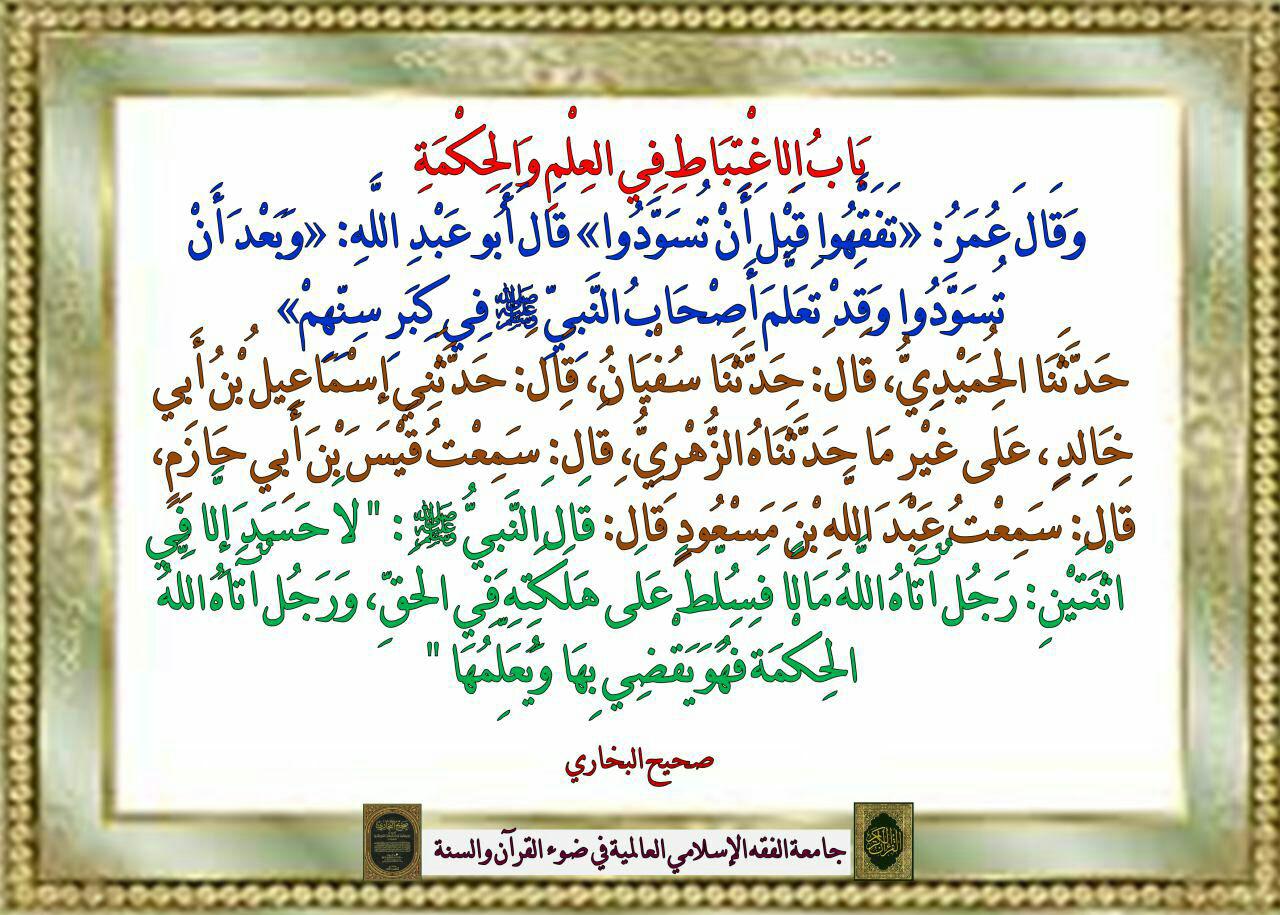 بَابُ الِاغْتِبَاطِ فِي العِلْمِ وَالحِكْمَةِ
وَقَالَ عُمَرُ: «تَفَقَّهُوا قَبْلَ أَنْ تُسَوَّدُوا» قَالَ أَبُو عَبْدِ اللَّهِ: «وَبَعْدَ أَنْ
تُسَوَّدُوا وَقَدْ تَعَلَّمَ أَصْحَابُ النَّبِيِّ ﷺ فِي كِبَرِ سِنِّهِمْ»
حَدَّثَنَا الحُمَيْدِيُّ، قَالَ: حَدَّثَنَا سُفْيَانُ، قَالَ: حَدَّثَنِي إِسْمَاعِيلُ بْنُ أَبِي
خَالِدٍ، عَلَى غَيْرِ مَا حَدَّثَنَاهُ الزُّهْرِيُّ، قَالَ: سَمِعْتُ قَيْسَ بْنَ أَبِي حَازِمٍ،
قَالَ: سَمِعْتُ عَبْدَ اللَّهِ بْنَ مَسْعُودٍ قَالَ: قَالَ النَّبِيُّ ﷺ: " لاَ حَسَدَ إِلَّا فِي
اثْنَتَيْنِ: رَجُلٌ آتَاهُ اللَّهُ مَالًا فَسُلِّطَ عَلَى هَلَكَتِهِ فِي الحَقِّ، وَرَجُلٌ آتَاهُ اللَّهُ
الحِكْمَةَ فَهُوَ يَقْضِي بِهَا وَيُعَلِّمُهَا "
صحيح البخاري
جامعة الفقه الإسلامي العالمية في ضوء القرآن والسنة